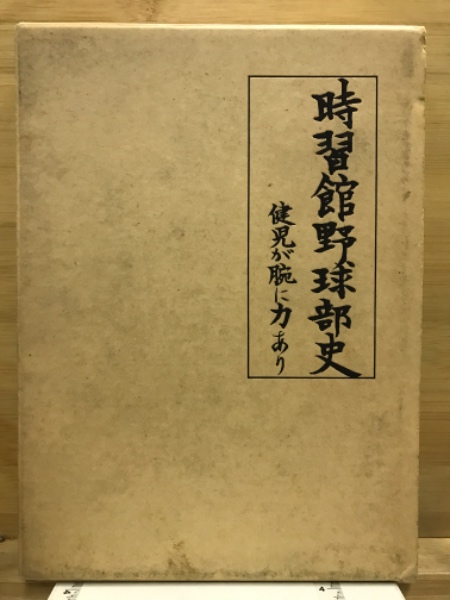 時習館野球部史
健児が腕に力あり